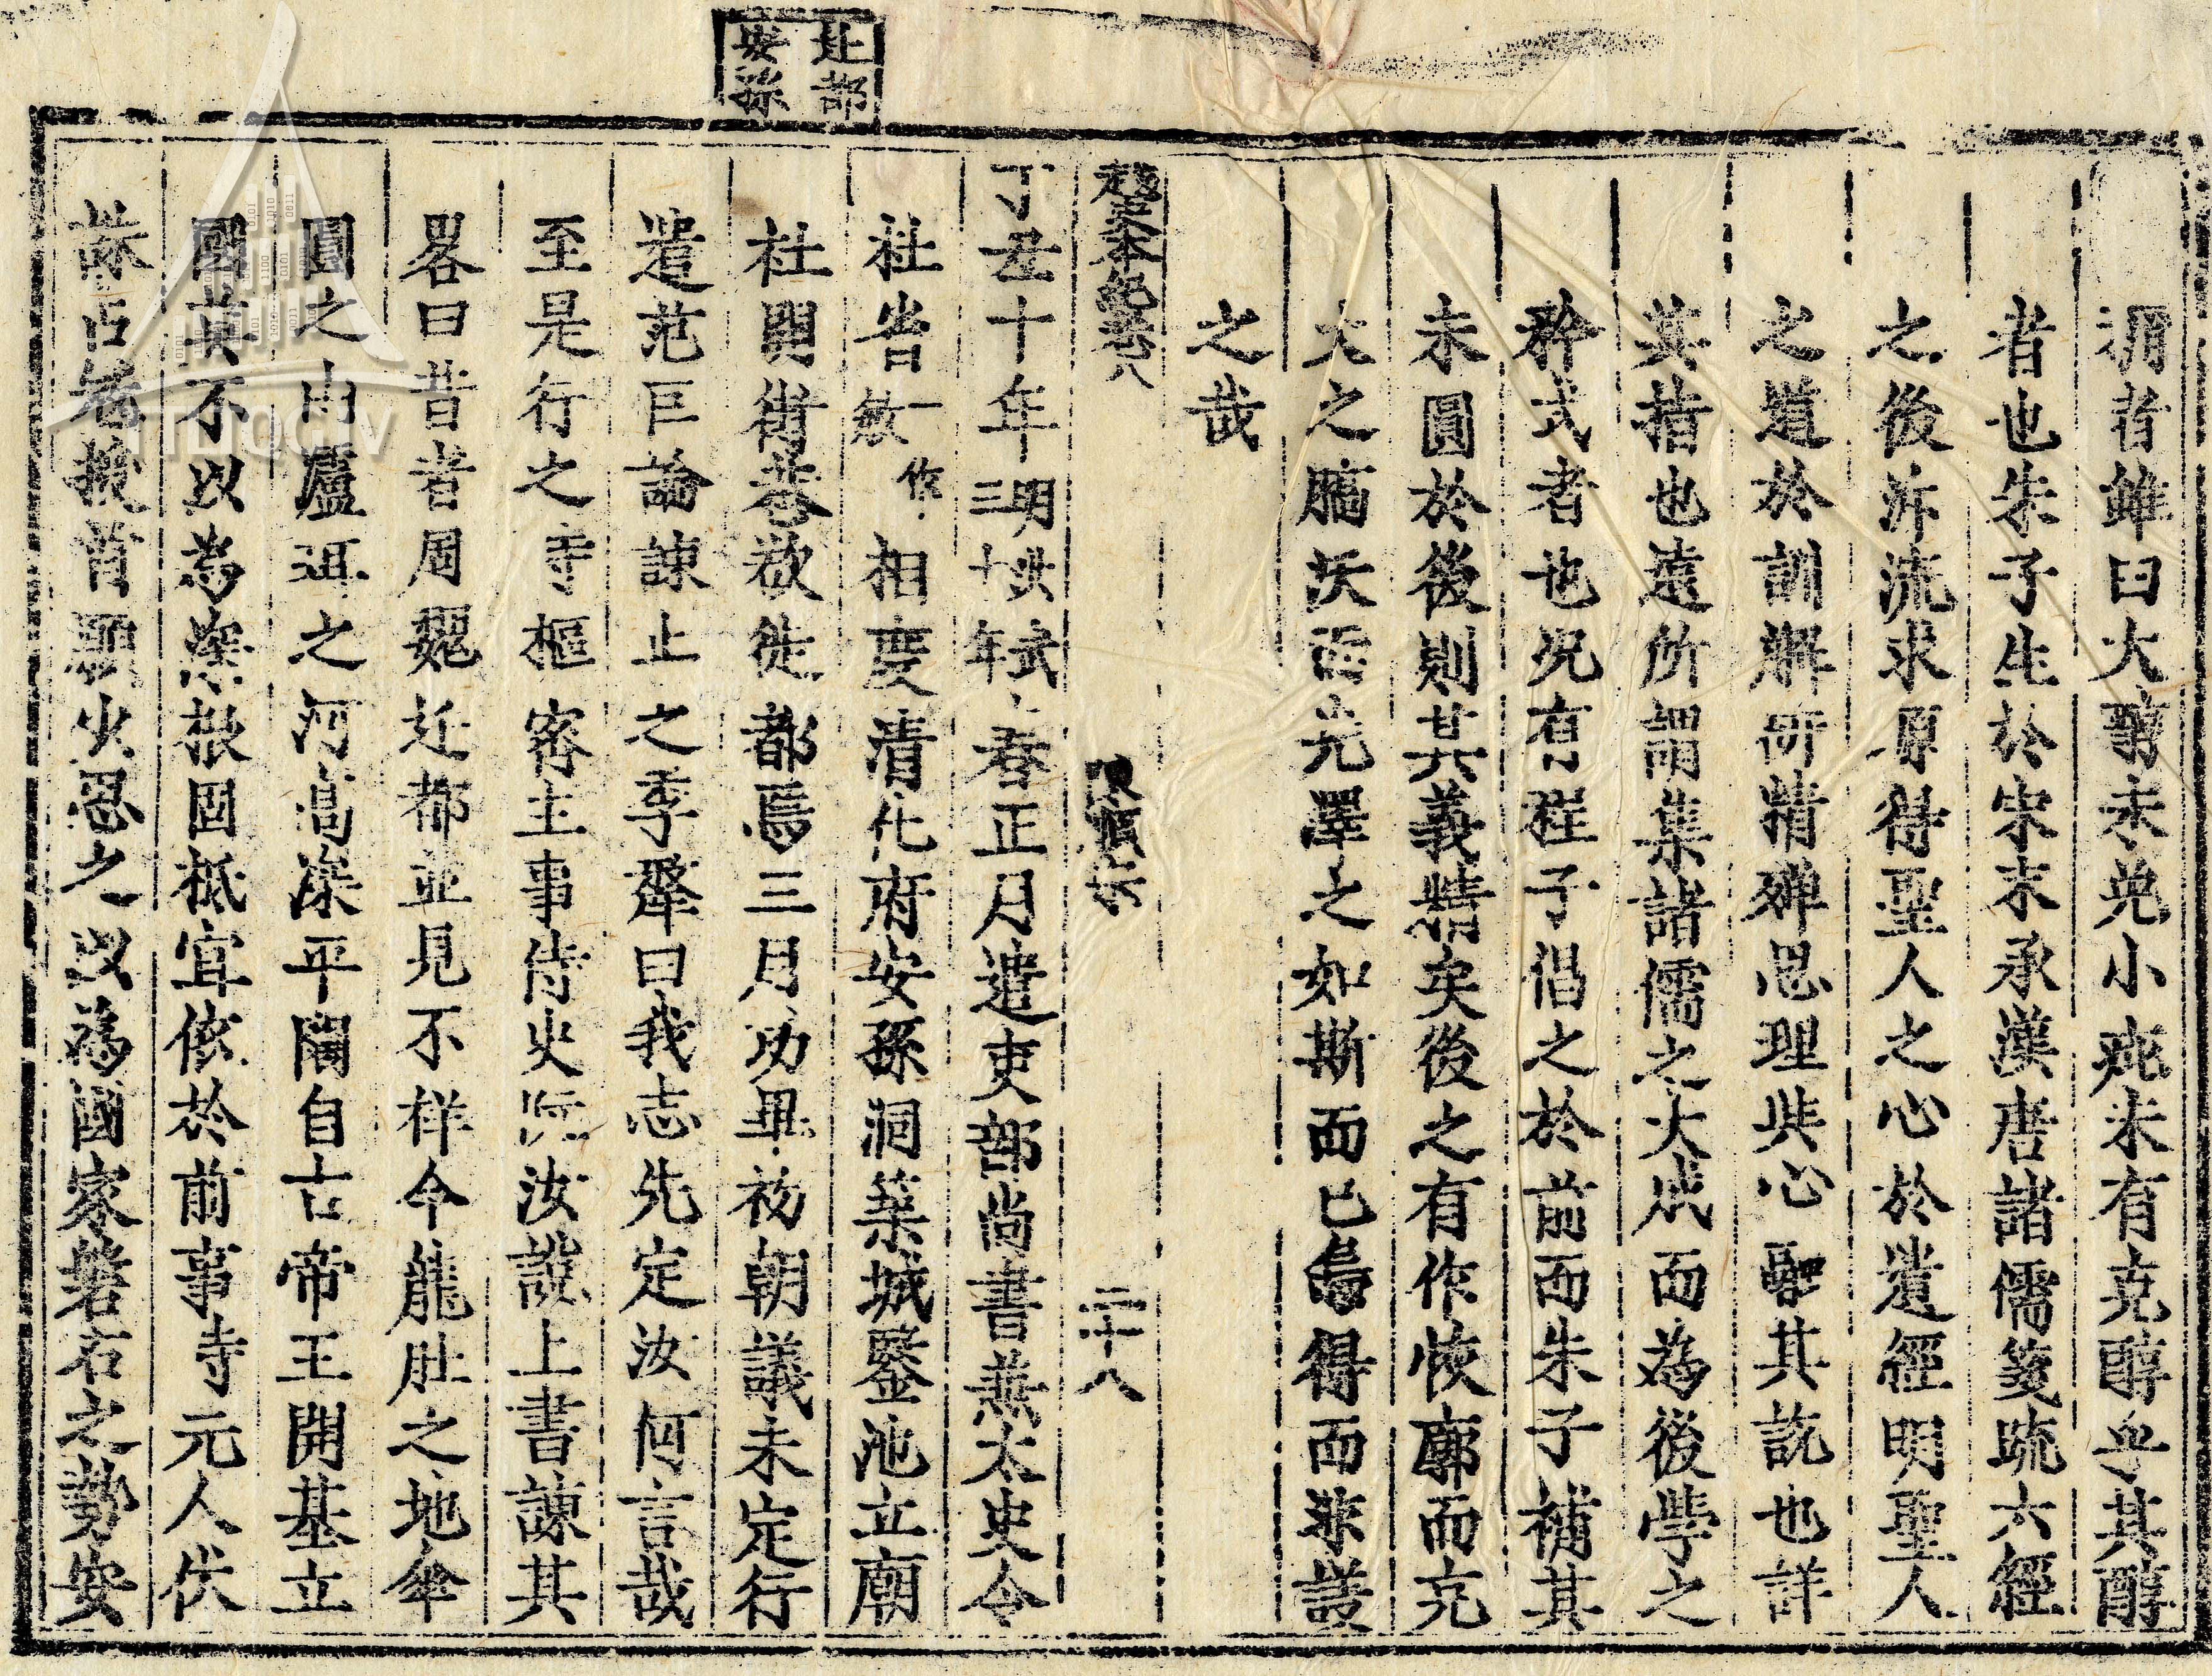 謂者雖曰大醇未免小疵未有克醇乎其醇
者也朱子生於宋末承漢唐諸儒箋疏六經
之後泝流求原得聖人之心於遺經明聖人
之道於訓解研精殫思理與心融其説也詳
其指也遠所謂集諸儒之大成而為後學之
矜式者也况有程子倡之於前而朱子補其
未圓於後則其義精矣後之有作恢廓而充
大之膏沃而光澤之如斯而已烏得而非議
之哉
越史本紀卷八
陳質𫝊
二十八
丁丑十年明洪武三十年春正月遣吏部尚書兼太史令
杜省一作敏相度清化府安孫洞築城鑿池立廟
社開街巷欲徙都焉三月功畢初朝議未定行
遣范巨論諫止之季犛曰我志先定汝何言哉
至是行之寺樞密主事侍史阮汝説上書諫其
畧曰昔者周魏迁都並見不祥今龍肚之地傘
圓之山瀘珥之河高深平闊自古帝王開基立
國莫不以為深根固柢宜依於前事寺元人伏
誅占㓂授首願少思之以為國家磐石之勢安
迁都
安孫
VNLP